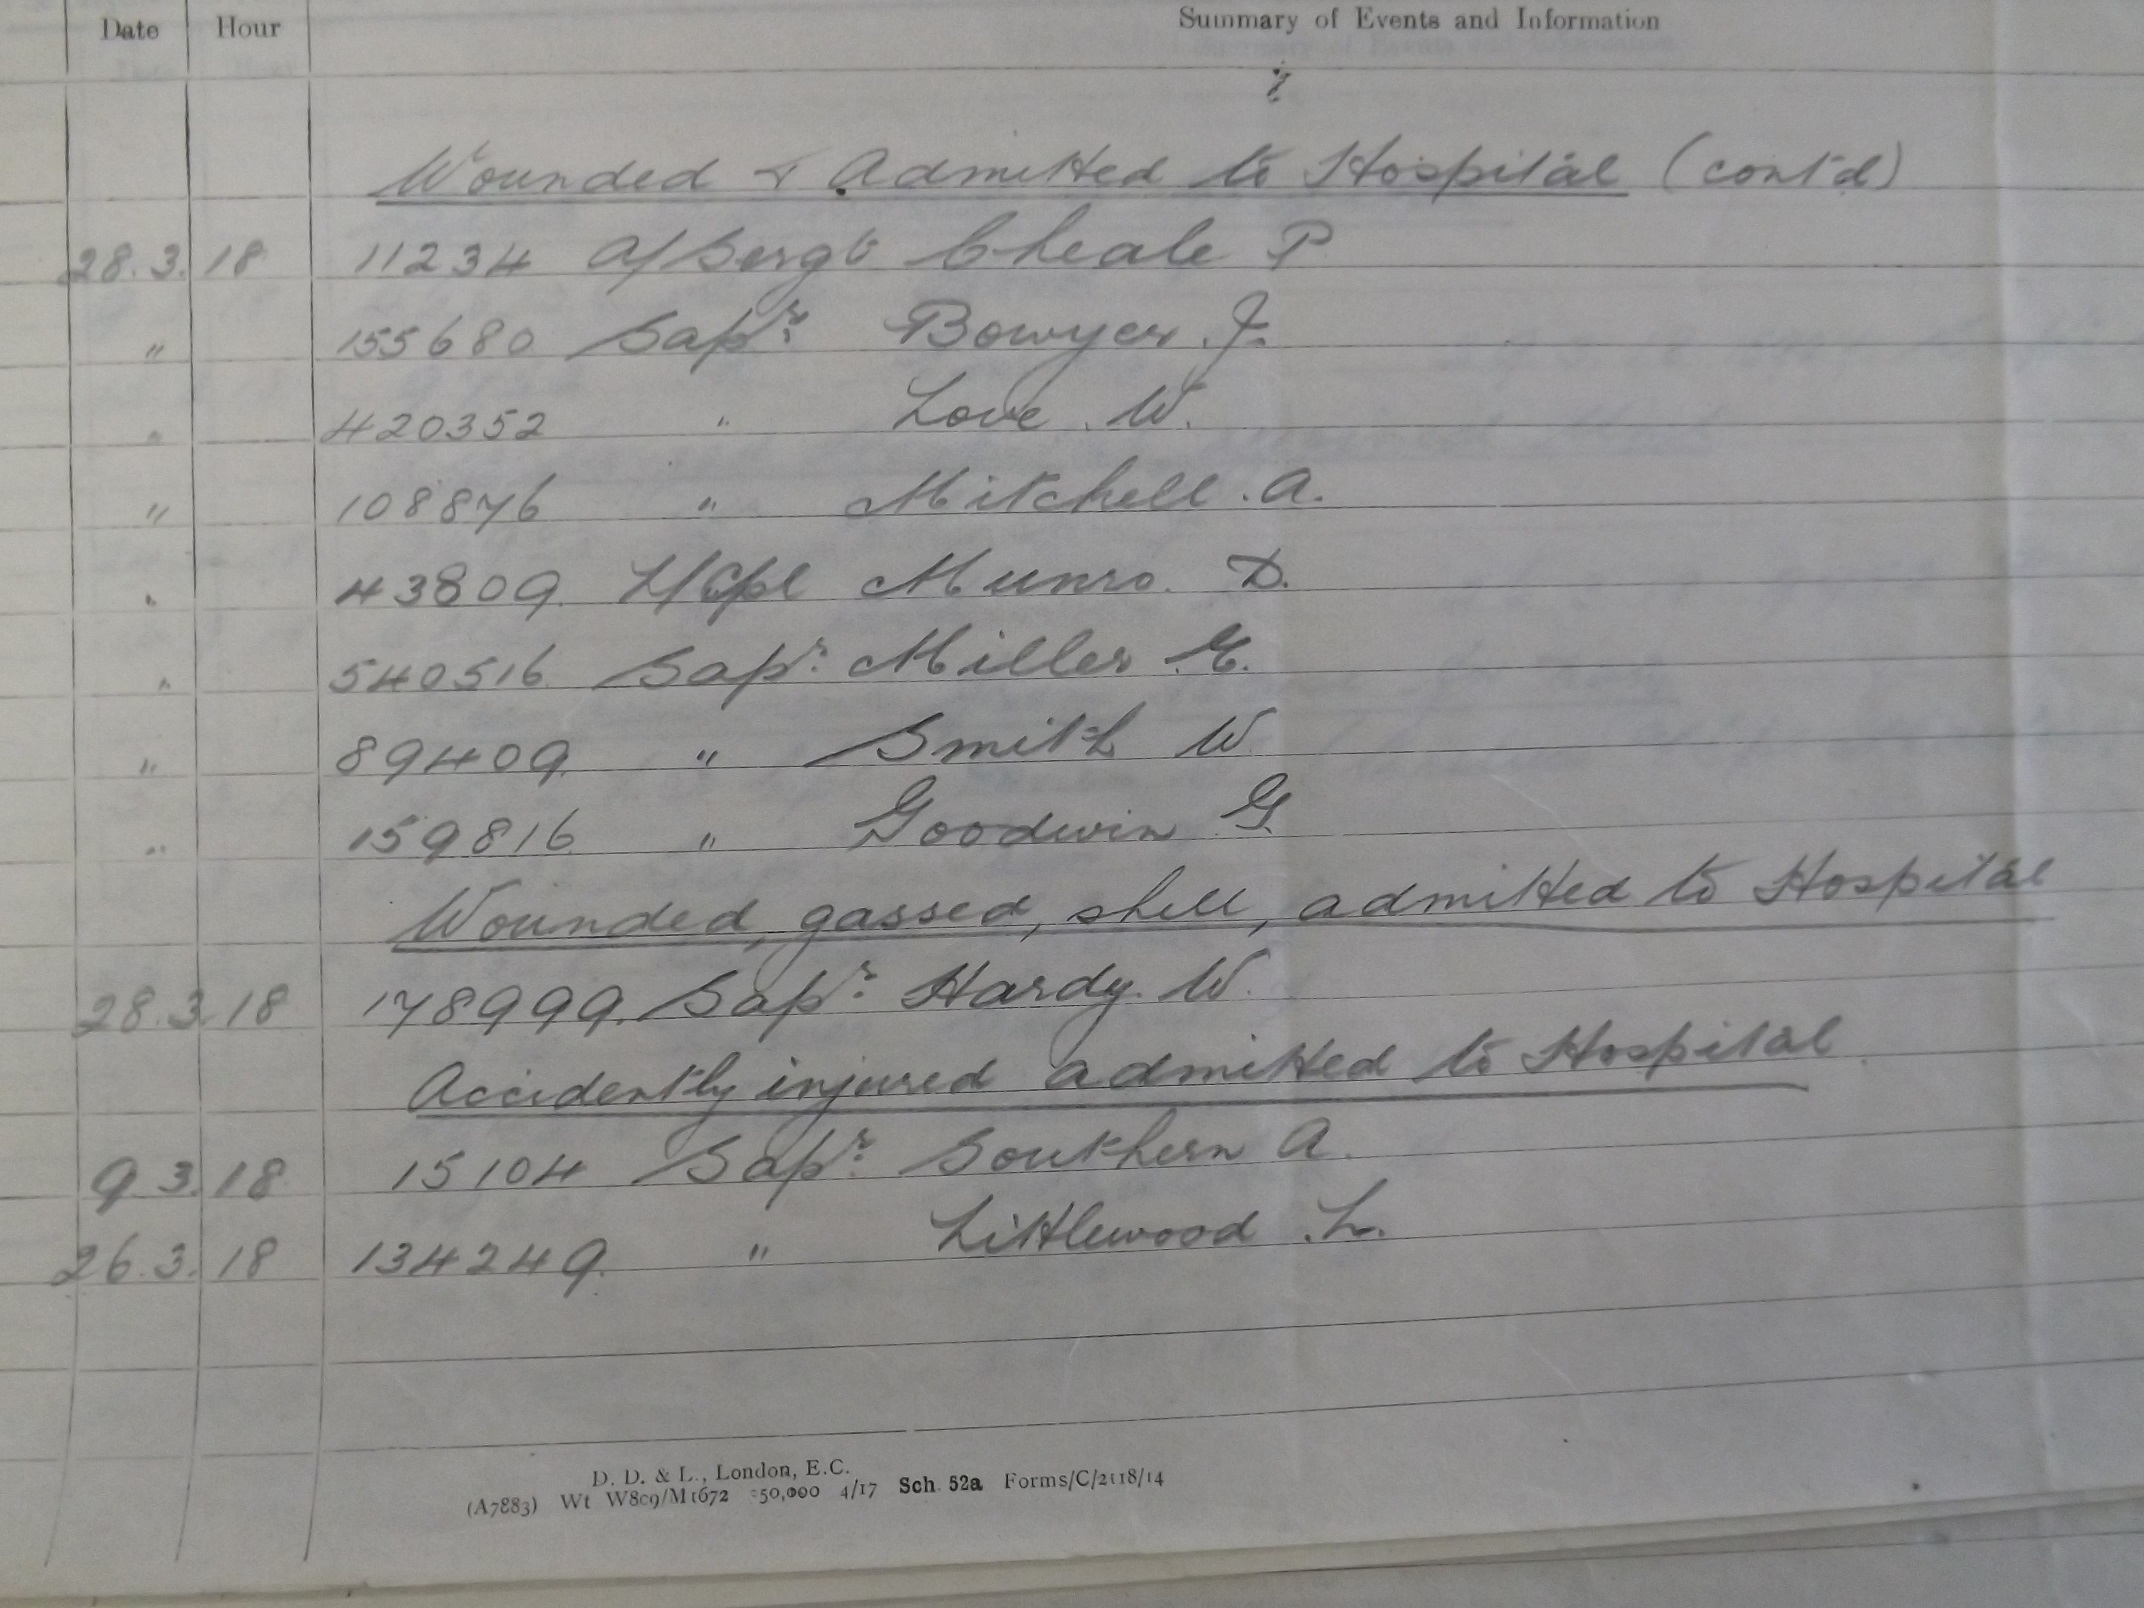 Date Hour Summary of Events and Information
Wounded & Admitted to Hospital (cont'd)
28.3.18 11234 A/Sergt Cheale P
" 155680 Sapr. Bowyer J.
" 420352 " Love W.
" 108876 " Mitchell A.
" 43809 L/Cpl Munro D.
" 540516 Sapr. Miller G.
" 89409 " Smith W
" 159816 " Goodwin G
Wounded, gassed, shell, admitted to Hospital
28.3.18 178999 Sapr. Hardy W.
Accidently injured admitted to Hospital
9.3.18 15104 Sapr. Southern A.
26.3.18 134249 " Littlewood L.
D. D. & L., London, E.C.
(A7883) Wt W809/M1672 50,000 4/17 Sch. 52a Forms/C/2118/14